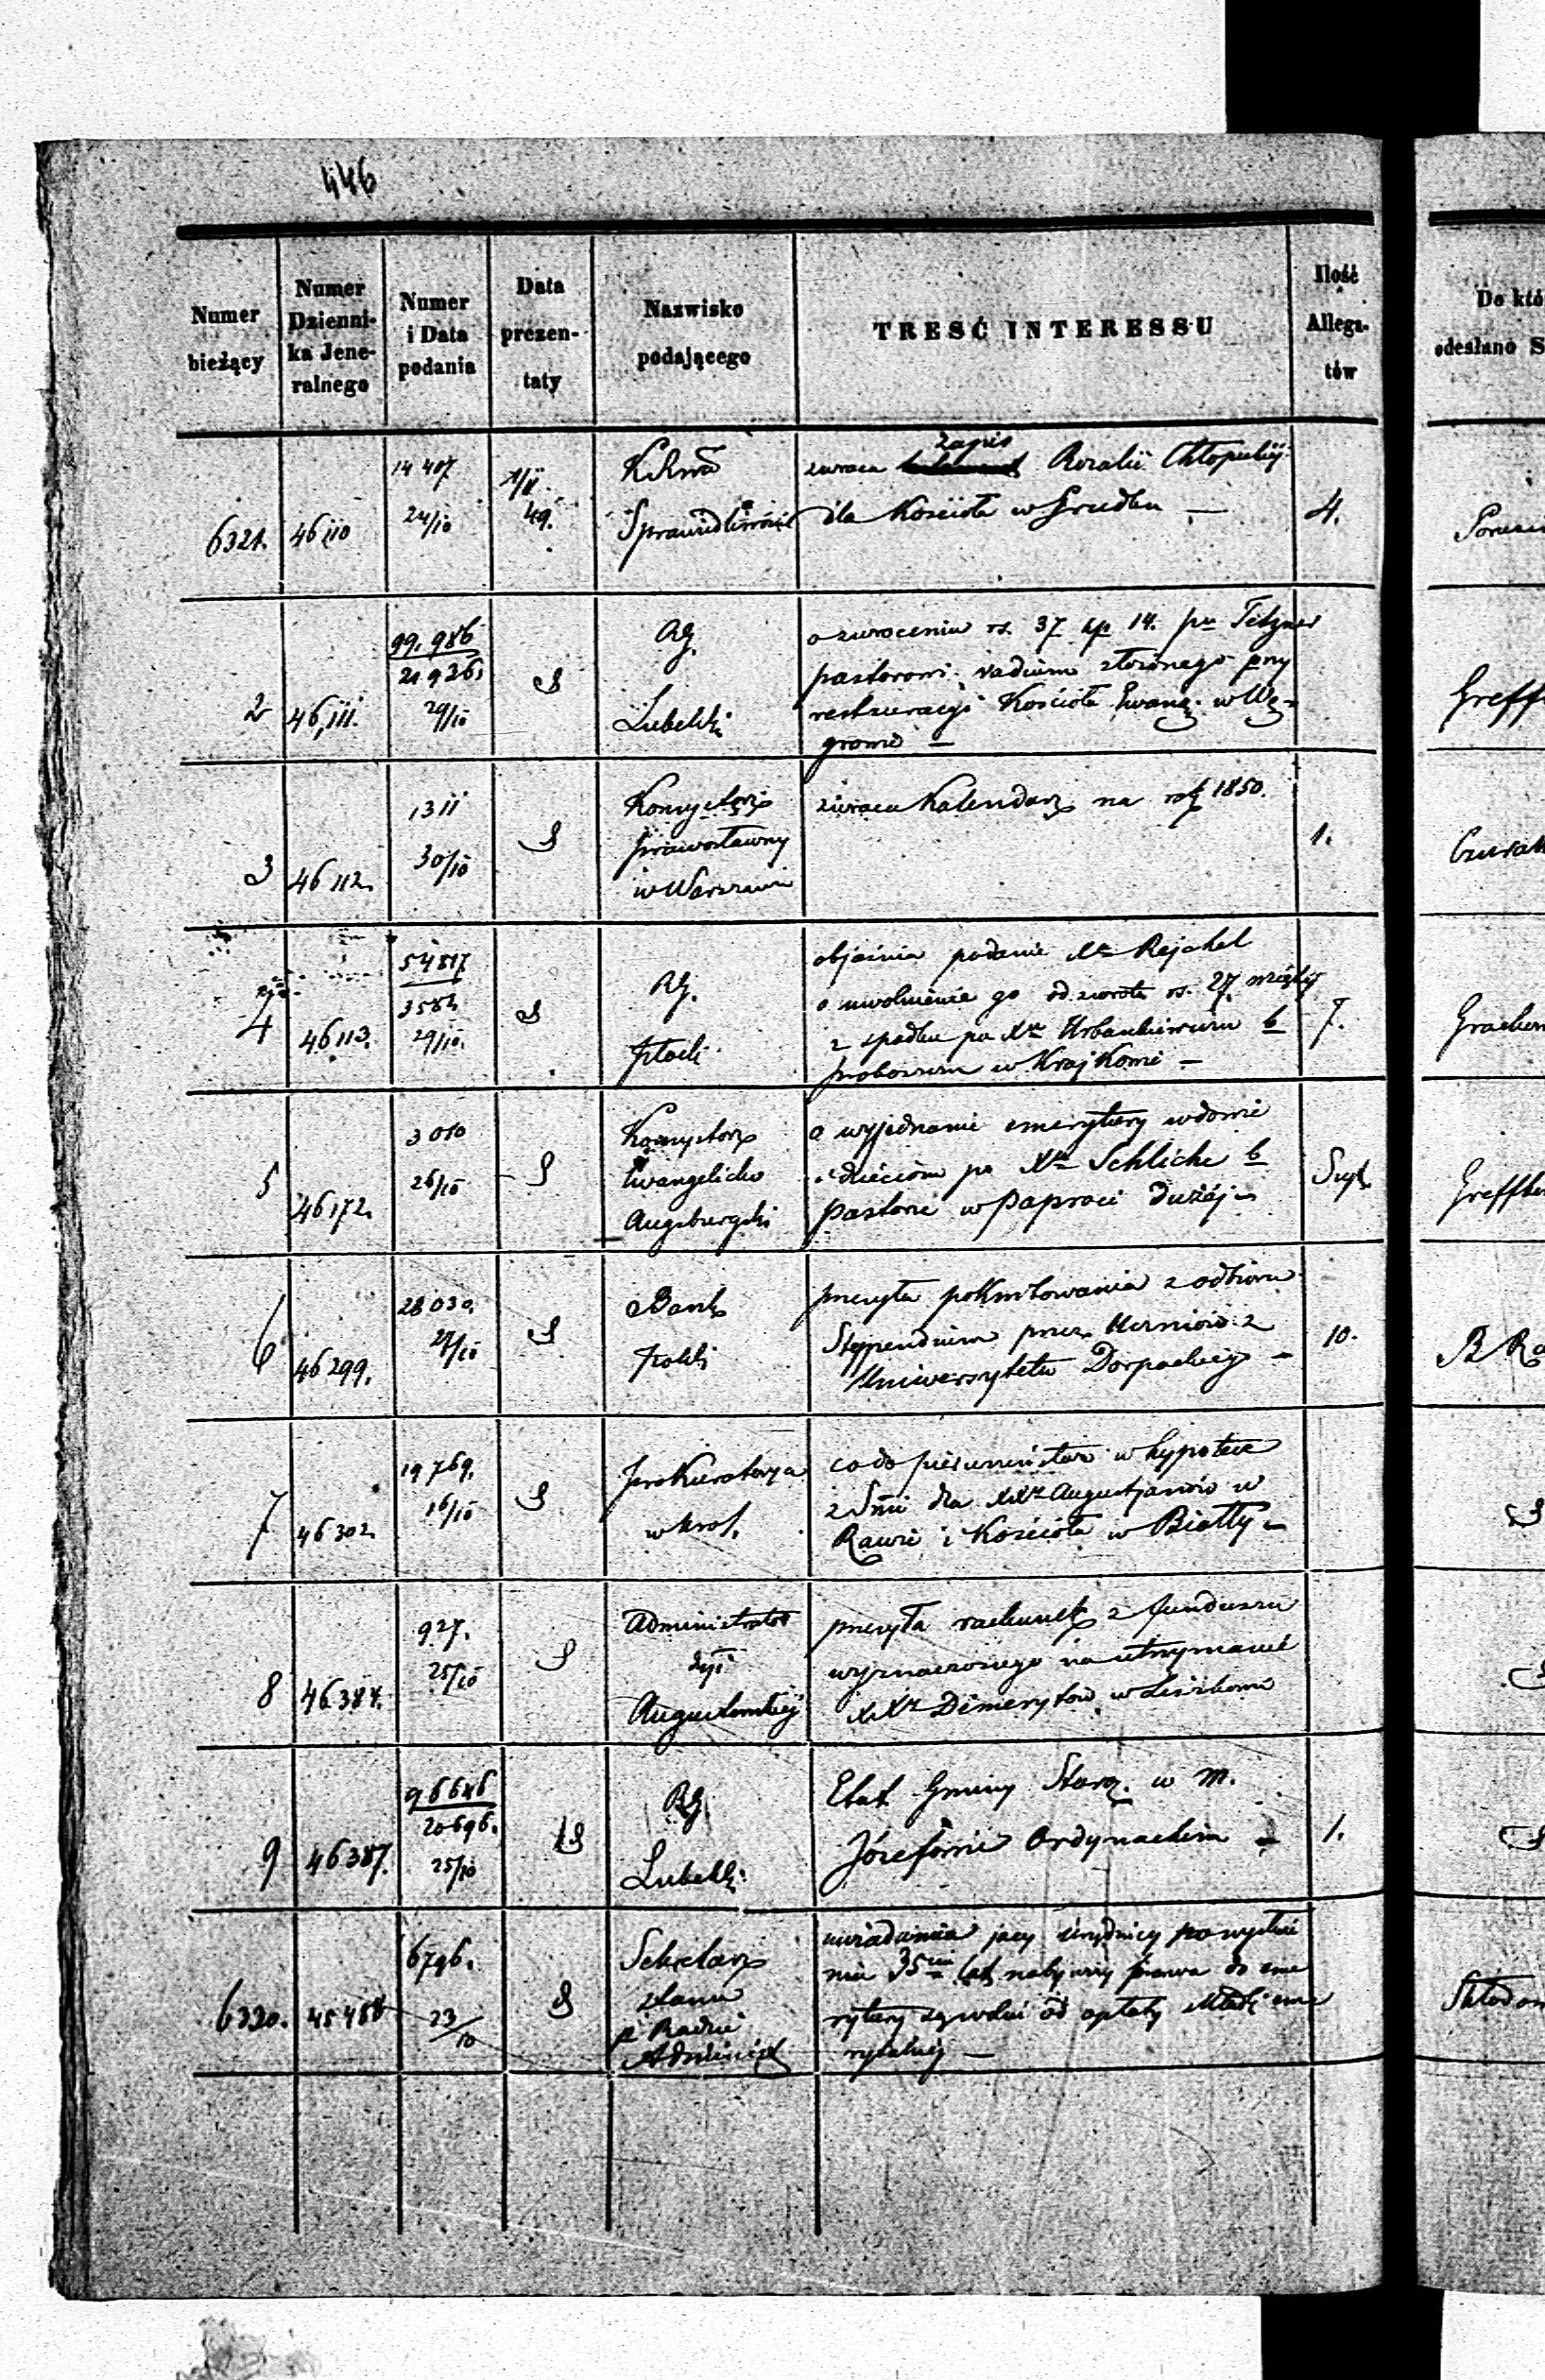 446
Numer bieżący
Numer Dzienni- ka Jene- ralnego
Numer i Data podania
Data prezen- taty
Nazwisko podającego
TREŚĆ INTERESSU
Ilość Allega- tów
Do któ
odesłano S
6321.
46110
14 407
24/10
1/11
49.
Sprawiedliwości
zwraca zapis Rozalii
dla Kościoła w
4.
2
46,111.
99.986
21 936.
29/10
RG.
Lubelski
o zwroceniu rs. 37 kp 14. pu
pastorowi vadium złożonego przy
restauracyi Kościoła Ewang. w Wę-
growie —
Greff
3
46 112.
1311
30/10
Konsystorz
prawosławny
w Warszawie
zwraca Kalendarz na rok 1850.
1.
4
46113.
54817
3582
29/10.
RG.
Płocki
objaśnia podanie Xa Rejchel
o uwolnienie go od zwrotu rs. 27
z spadku po Xu Urbankiewiczu b
proboszczu w Krajkowie —
7.
5
46172.
3010
26/10
Konsystorz
Ewangelicko
Augsburgski
o wyjednanie emerytury wdowie
i dzieciom po Xu Schlicke b
pastorze w Paproci Dużéj —
6
46299.
28 030.
27/10
Bank
Polski
przesyła pokwitowania z odbioru
Stypendium przez Uczniów z
Uniwersytetu Dorpackiego —
10.
7
46302
19769.
16/10
Prokuratorya
w Krol.
co do pierwszeństwa w hypotece
dla XXy Augustjanów w
Rawie i Kościoła w Biatty —
8
46384.
927.
25/10
Administrator
dyi
Augustowskiej
przesyła rachunek z funduszu
wyznaczonego na utrzymanie
XXy Demerytów w
9
46387.
96646
20696.
25/10
RG
Lubelski
Etat Gminy Staroz. w m.
Józefowie Ordynackim —
1.
6330.
45488
6796.
23/10
Sekretarz
Stanu
p Radzie
Administ
uwiadamia jacy Urzędnicy po wysłuże
niu 35ciu lat nabywszy prawa do eme
rytury są wolni od opłaty Składki eme
rytalnej —